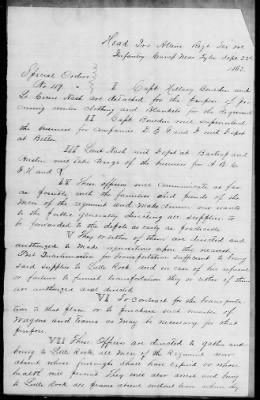 Head Qrs Allens Regt Tex Vol
Infantry Camp Near Tyler Sept 22d
1862
Special Order
No 119    I Capt. Hillary
Lt. Nash are detached for the purpose of pro
curing winter clothing and Blankets for the Regiment
II Capt. will superintend
the business for companies D E G and I with Depot
at Belton
III Lieut Nash with Depot at Bastrop and
Austin will take charge of the business for A B C
F H and K
IV These officers will communicate as far
as possible with the families and friends of the
men of the regiment and make known our wants
to the public generally directing all supplies to
be forwarded to the depots as early as practicable
V They or either of them are directed and
authorized to make requisitions upon the nearest
Post Quartermaster for transportation sufficient to bring
said supplies to Little Rock, and in case of his refusal
or failure to furnish transportation they or either of them
are authorized and directed
VI To contract for the transporta
tion to this place or to purchase such number of
Wagons and teams as may be necessary for that
purpose.
VII These Officers are directed to gather and
bring to Little Rock all men of the Regiment now
absent whose furloughs shall have expired or whose
health will permit They will also arrest and bring
to Little Rock all persons absent without leave when by